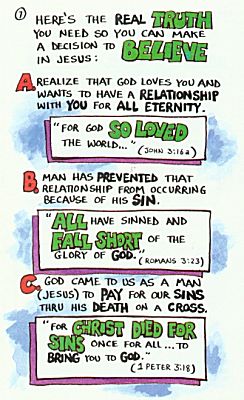 1
HERE'S THE REAL TRUTH
YOU NEED SO YOU CAN MAKE
A DECISION TO BELIEVE
IN JESUS:
A. REALIZE THAT GOD LOVES YOU AND
WANTS TO HAVE A RELATIONSHIP
WITH YOU FOR ALL ETERNITY.
"FOR GOD SO LOVED
THE WORLD..." (JOHN 3:16a)
B. MAN HAS PREVENTED THAT
RELATIONSHIP FROM OCCURRING
BECAUSE OF HIS SIN.
"ALL HAVE SINNED AND
FALL SHORT OF THE
GLORY OF GOD." (ROMANS 3:23)
C. GOD CAME TO US AS A MAN
(JESUS) TO PAY FOR OUR SINS
THRU HIS DEATH ON A CROSS.
"FOR CHRIST DIED FOR
SINS ONCE FOR ALL... TO
BRING YOU TO GOD."
(1 PETER 3:18)